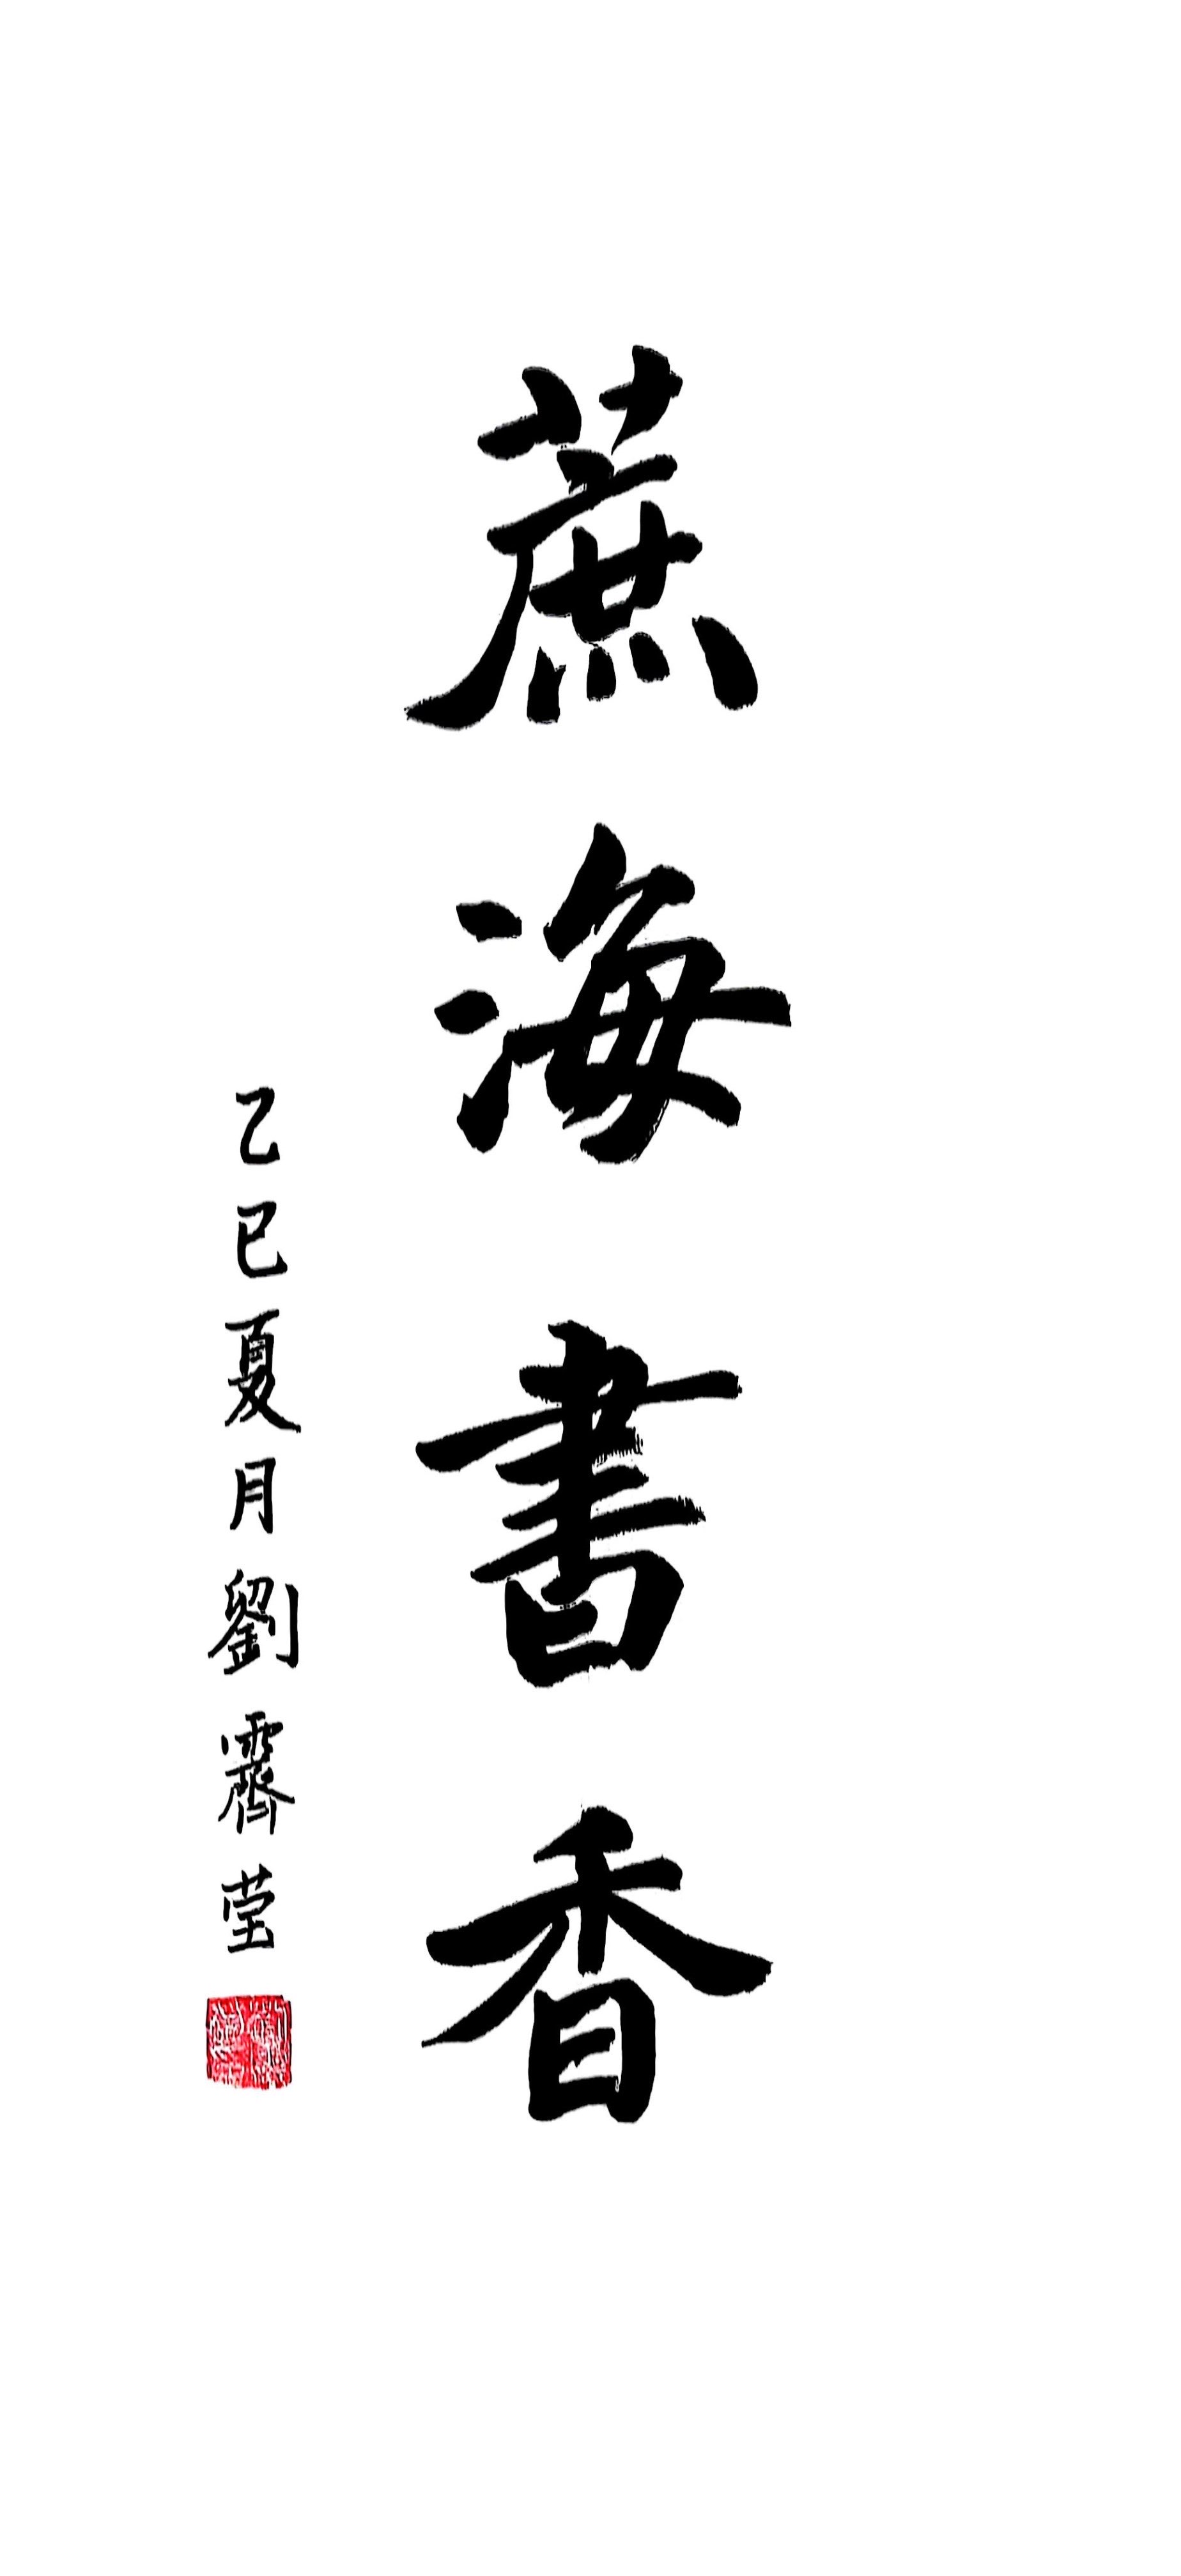 蔗海書香
乙巳夏月劉霽莹